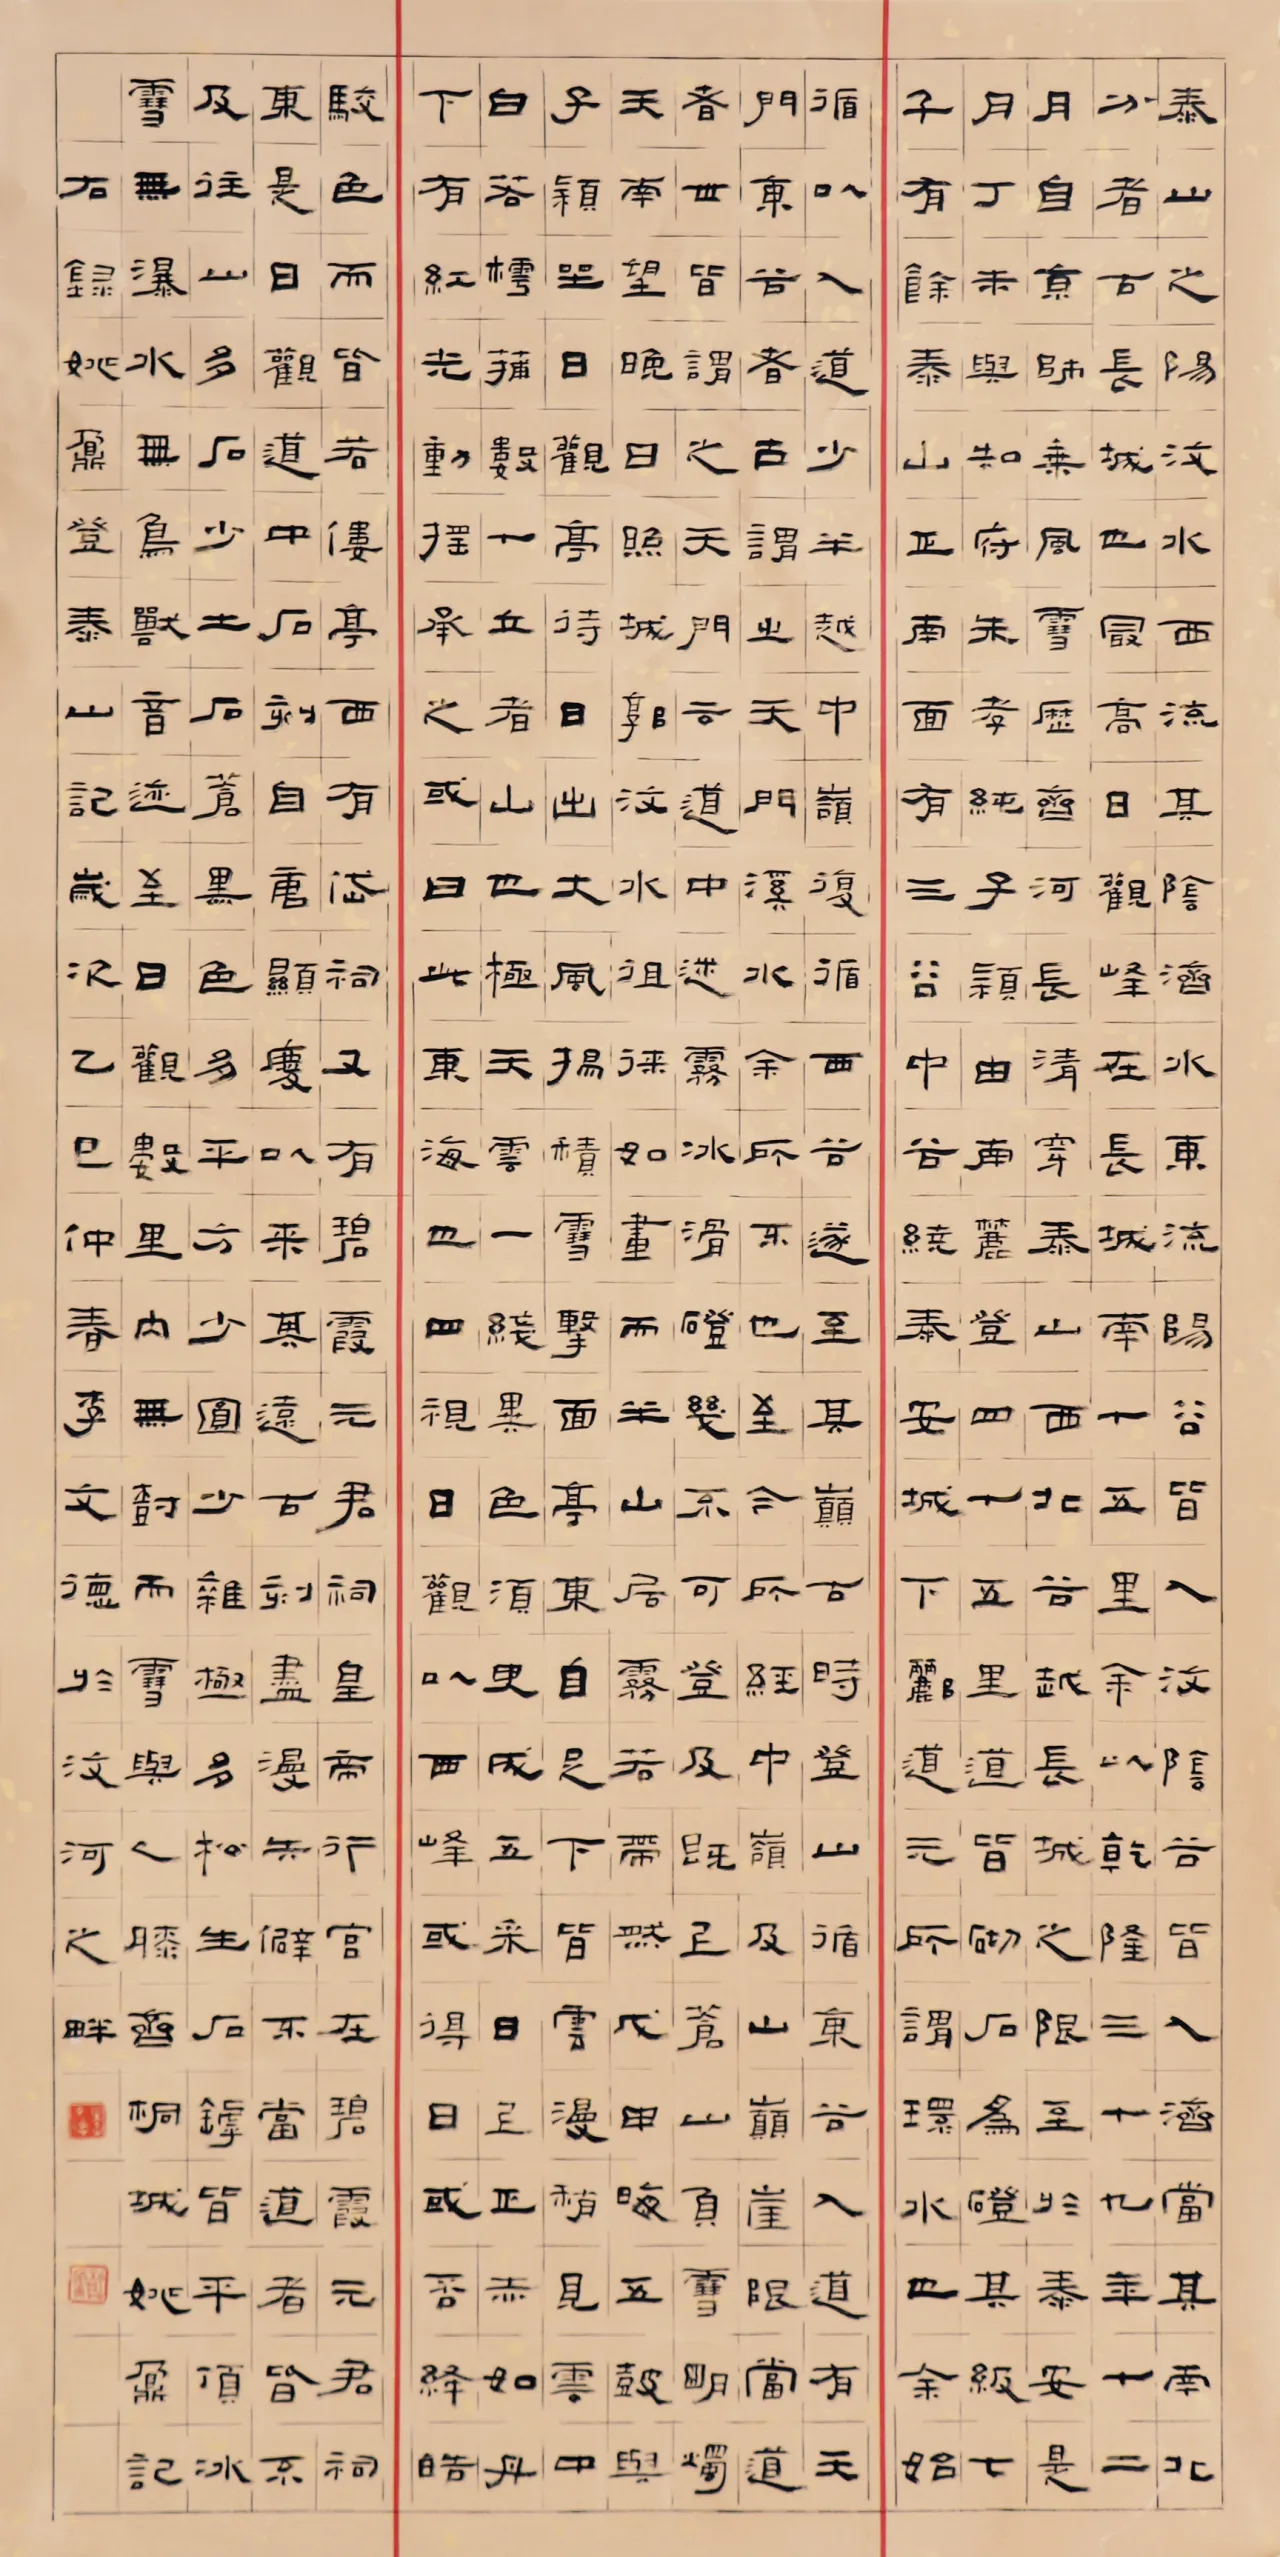 泰山之陽汶水西流其陰濟水東流陽谷皆入汶陰谷皆入濟當其南北
分者古長城也最高日觀峰在長城南十五里余以乾隆三十九年十二
月自京師乘風雪歷齊河長清穿泰山西北谷越長城之限至於泰安是
月丁未與知府朱孝純子潁由南麓登四十五里道皆砌石為磴其級七
千有餘泰山正南面有三谷中谷繞泰安城下酈道元所謂環水也余始
循以入道少半越中嶺復循西谷遂至其巔古時登山循東谷入道有天
門東谷者古謂之天門溪水余所不也至今所經中嶺及山巔崖限當道
者世皆謂之天門云道中迷霧冰滑磴幾不可登及既上蒼山負雪明燭
天南望晚日照城郭汶水徂徠如畫而半山居霧若帶然戊申晦五鼓與
子潁坐日觀亭待日出大風揚積雪擊面亭東自足下皆雲漫稍見雲中
白若樗蒱數十立者山也極天雲一綫異色須臾成五采日上正赤如丹
下有紅光動搖承之或曰此東海也四視日觀以西峰或得日或否絳皓
駮色而皆若僂亭西有岱祠又有碧霞元君祠皇帝行宮在碧霞元君祠
東是日觀道中石刻自唐顯慶以來其遠古刻盡漫失僻不當道者皆不
及往山多石少土石蒼黑色多平方少圓少雜極多松生石罅皆平頂冰
雪無瀑水無鳥獸音迹至日觀數里內無樹而雪與人膝齊桐城姚鼐記
右錄姚鼐登泰山記歲次乙巳仲春李文德於汶河之畔